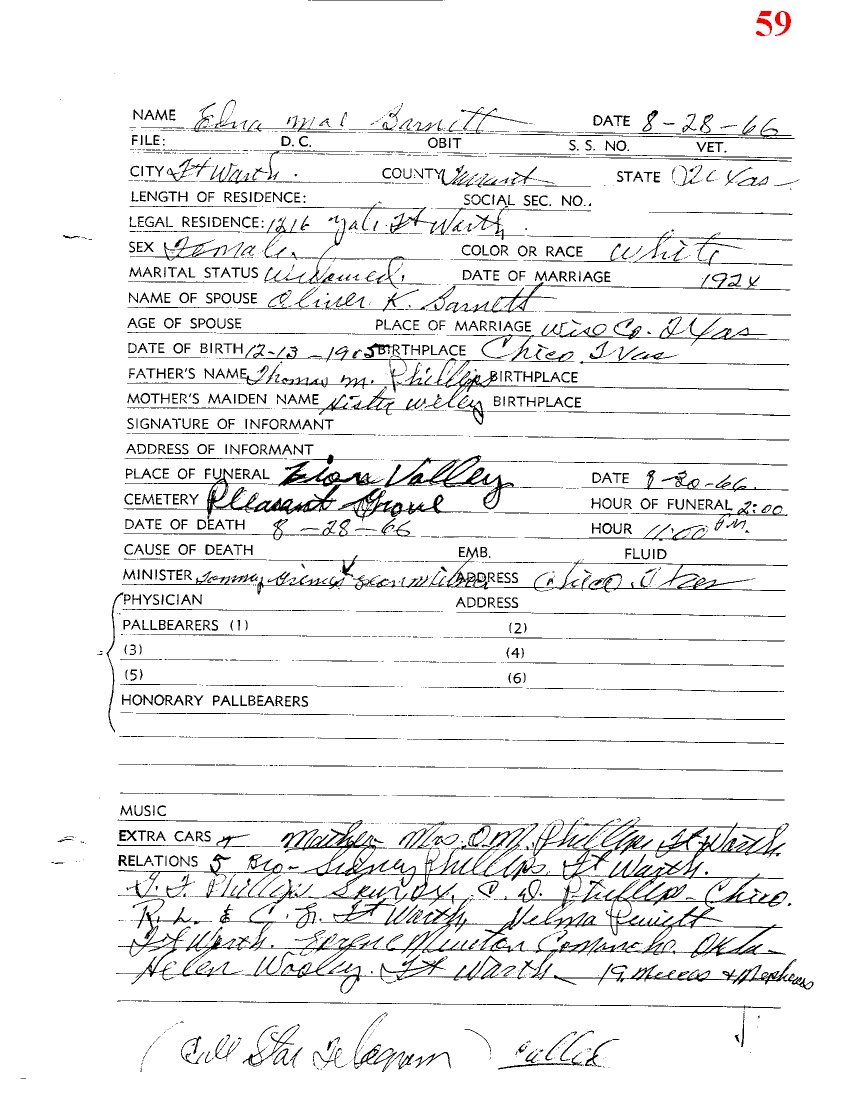 59
NAME Edna Mae Barnett DATE 8-28-66
FILE: D.C. OBIT S. S. NO. VET.
CITY Ft Warth. COUNTY Tarrant STATE Texas
LENGTH OF RESIDENCE: SOCIAL SEC. NO..
LEGAL RESIDENCE: 1216 Yale Ft Warth.
SEX Female. COLOR OR RACE White
MARITAL STATUS Widowed. DATE OF MARRIAGE 1924
NAME OF SPOUSE Oliver K. Barnett
AGE OF SPOUSE PLACE OF MARRIAGE Wise Co. Texas
DATE OF BIRTH 12-13-1905 BIRTHPLACE Chico, Texas
FATHER'S NAME Thomas M. Phillips BIRTHPLACE
MOTHER'S MAIDEN NAME Wiley BIRTHPLACE
SIGNATURE OF INFORMANT
ADDRESS OF INFORMANT
PLACE OF FUNERAL Valley DATE 8-30-66.
CEMETERY Pleasant Grove HOUR OF FUNERAL 2:00
DATE OF DEATH 8-28-66 HOUR 11:00 PM.
CAUSE OF DEATH EMB. FLUID
MINISTER Tommy Grimes ADDRESS Chico, Texas
PHYSICIAN ADDRESS
PALLBEARERS (1) (2)
(3) (4)
(5) (6)
HONORARY PALLBEARERS
MUSIC
EXTRA CARS Mother Mrs. O.M. Phillips Ft Warth.
RELATIONS 5 Bro- Sidney Phillips, Ft Warth.
Phillips C. D. Phillips - Chico.
R. L. & C. Ft Warth, Velma
Ft Warth. Comanche. Okla-
Helen Wooley. Ft Warth - 19 Nieces & Nephews
(Call Star Telegram) called